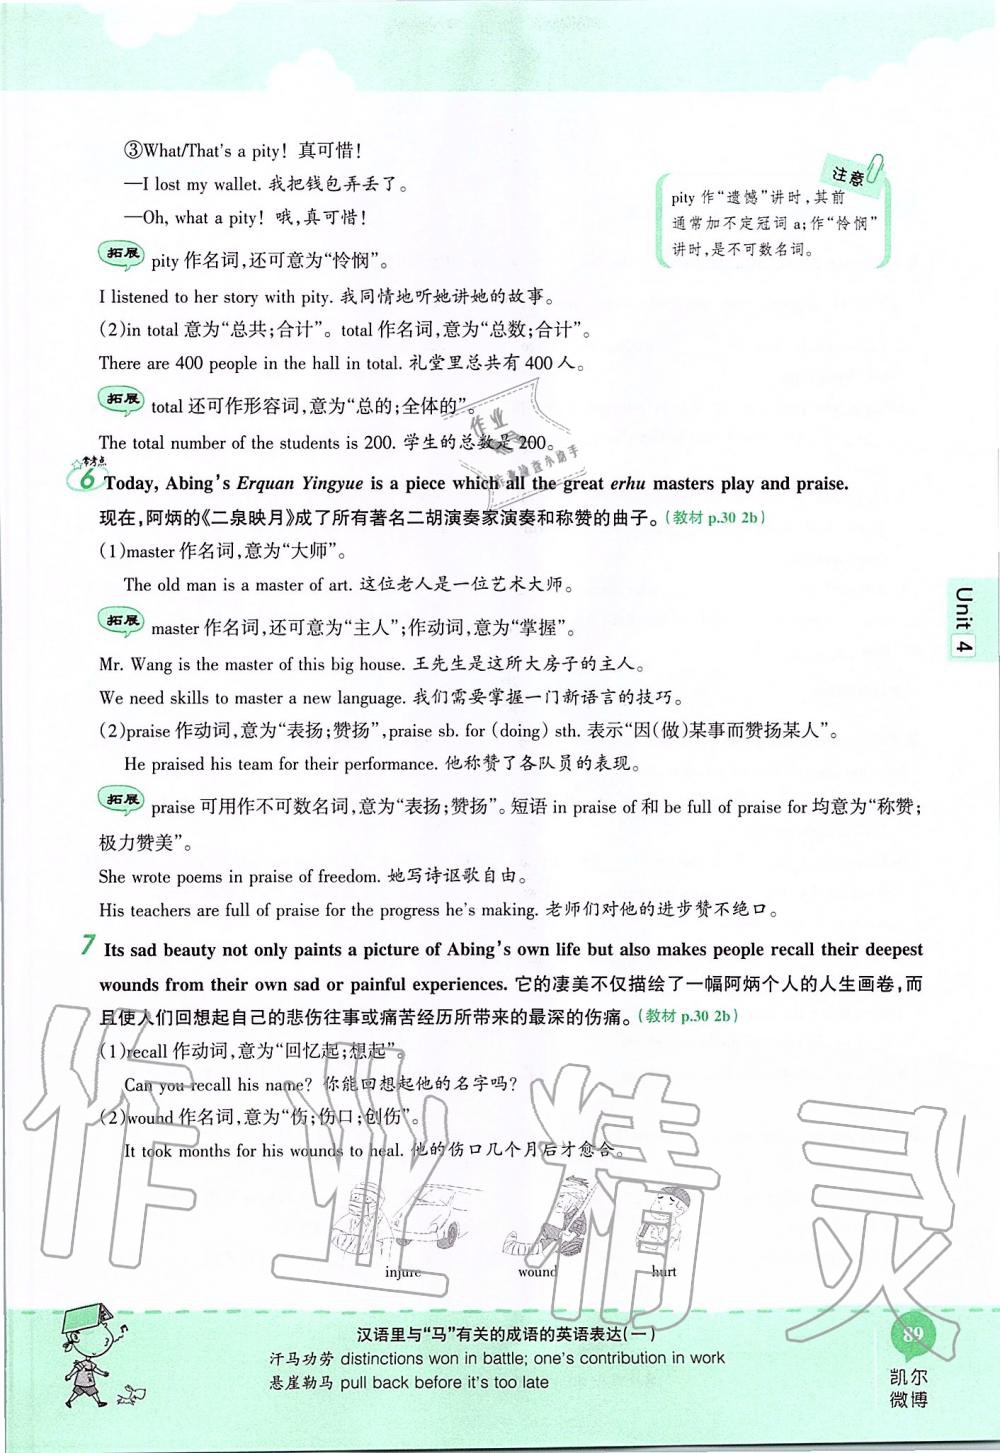 ③What/That's a pity! 真可惜!
—I lost my wallet. 我把钱包弄丢了。
—Oh, what a pity! 哦,真可惜!
注意
pity 作“遗憾”讲时,其前
通常加不定冠词 a;作“怜悯”
讲时,是不可数名词。
拓展 pity 作名词,还可意为“怜悯”。
I listened to her story with pity. 我同情地听她讲她的故事。
(2)in total 意为“总共;合计”。total 作名词,意为“总数;合计”。
There are 400 people in the hall in total. 礼堂里总共有 400 人。
拓展 total 还可作形容词,意为“总的;全体的”。
The total number of the students is 200. 学生的总数是 200。
作业
作业检查小助手
常考点
6 Today, Abing's Erquan Yingyue is a piece which all the great erhu masters play and praise.
现在,阿炳的《二泉映月》成了所有著名二胡演奏家演奏和称赞的曲子。(教材 p.30 2b)
(1)master 作名词,意为“大师”。
The old man is a master of art. 这位老人是一位艺术大师。
拓展 master 作名词,还可意为“主人”;作动词,意为“掌握”。
Mr. Wang is the master of this big house. 王先生是这所大房子的主人。
We need skills to master a new language. 我们需要掌握一门新语言的技巧。
(2)praise 作动词,意为“表扬;赞扬”,praise sb. for (doing) sth. 表示“因(做)某事而赞扬某人”。
He praised his team for their performance. 他称赞了各队员的表现。
拓展 praise 可用作不可数名词,意为“表扬;赞扬”。短语 in praise of 和 be full of praise for 均意为“称赞;
极力赞美”。
She wrote poems in praise of freedom. 她写诗讴歌自由。
His teachers are full of praise for the progress he's making. 老师们对他的进步赞不绝口。
7 Its sad beauty not only paints a picture of Abing's own life but also makes people recall their deepest
wounds from their own sad or painful experiences. 它的凄美不仅描绘了一幅阿炳个人的人生画卷,而
且使人们回想起自己的悲伤往事或痛苦经历所带来的最深的伤痛。(教材 p.30 2b)
(1)recall 作动词,意为“回忆起;想起”。
Can you recall his name? 你能回想起他的名字吗?
(2)wound 作名词,意为“伤;伤口;创伤”。
It took months for his wounds to heal. 他的伤口几个月后才愈合。
作业精灵
injure wound hurt
Unit 4
汉语里与“马”有关的成语的英语表达(一)
汗马功劳 distinctions won in battle; one's contribution in work
悬崖勒马 pull back before it's too late
89
凯尔
微博